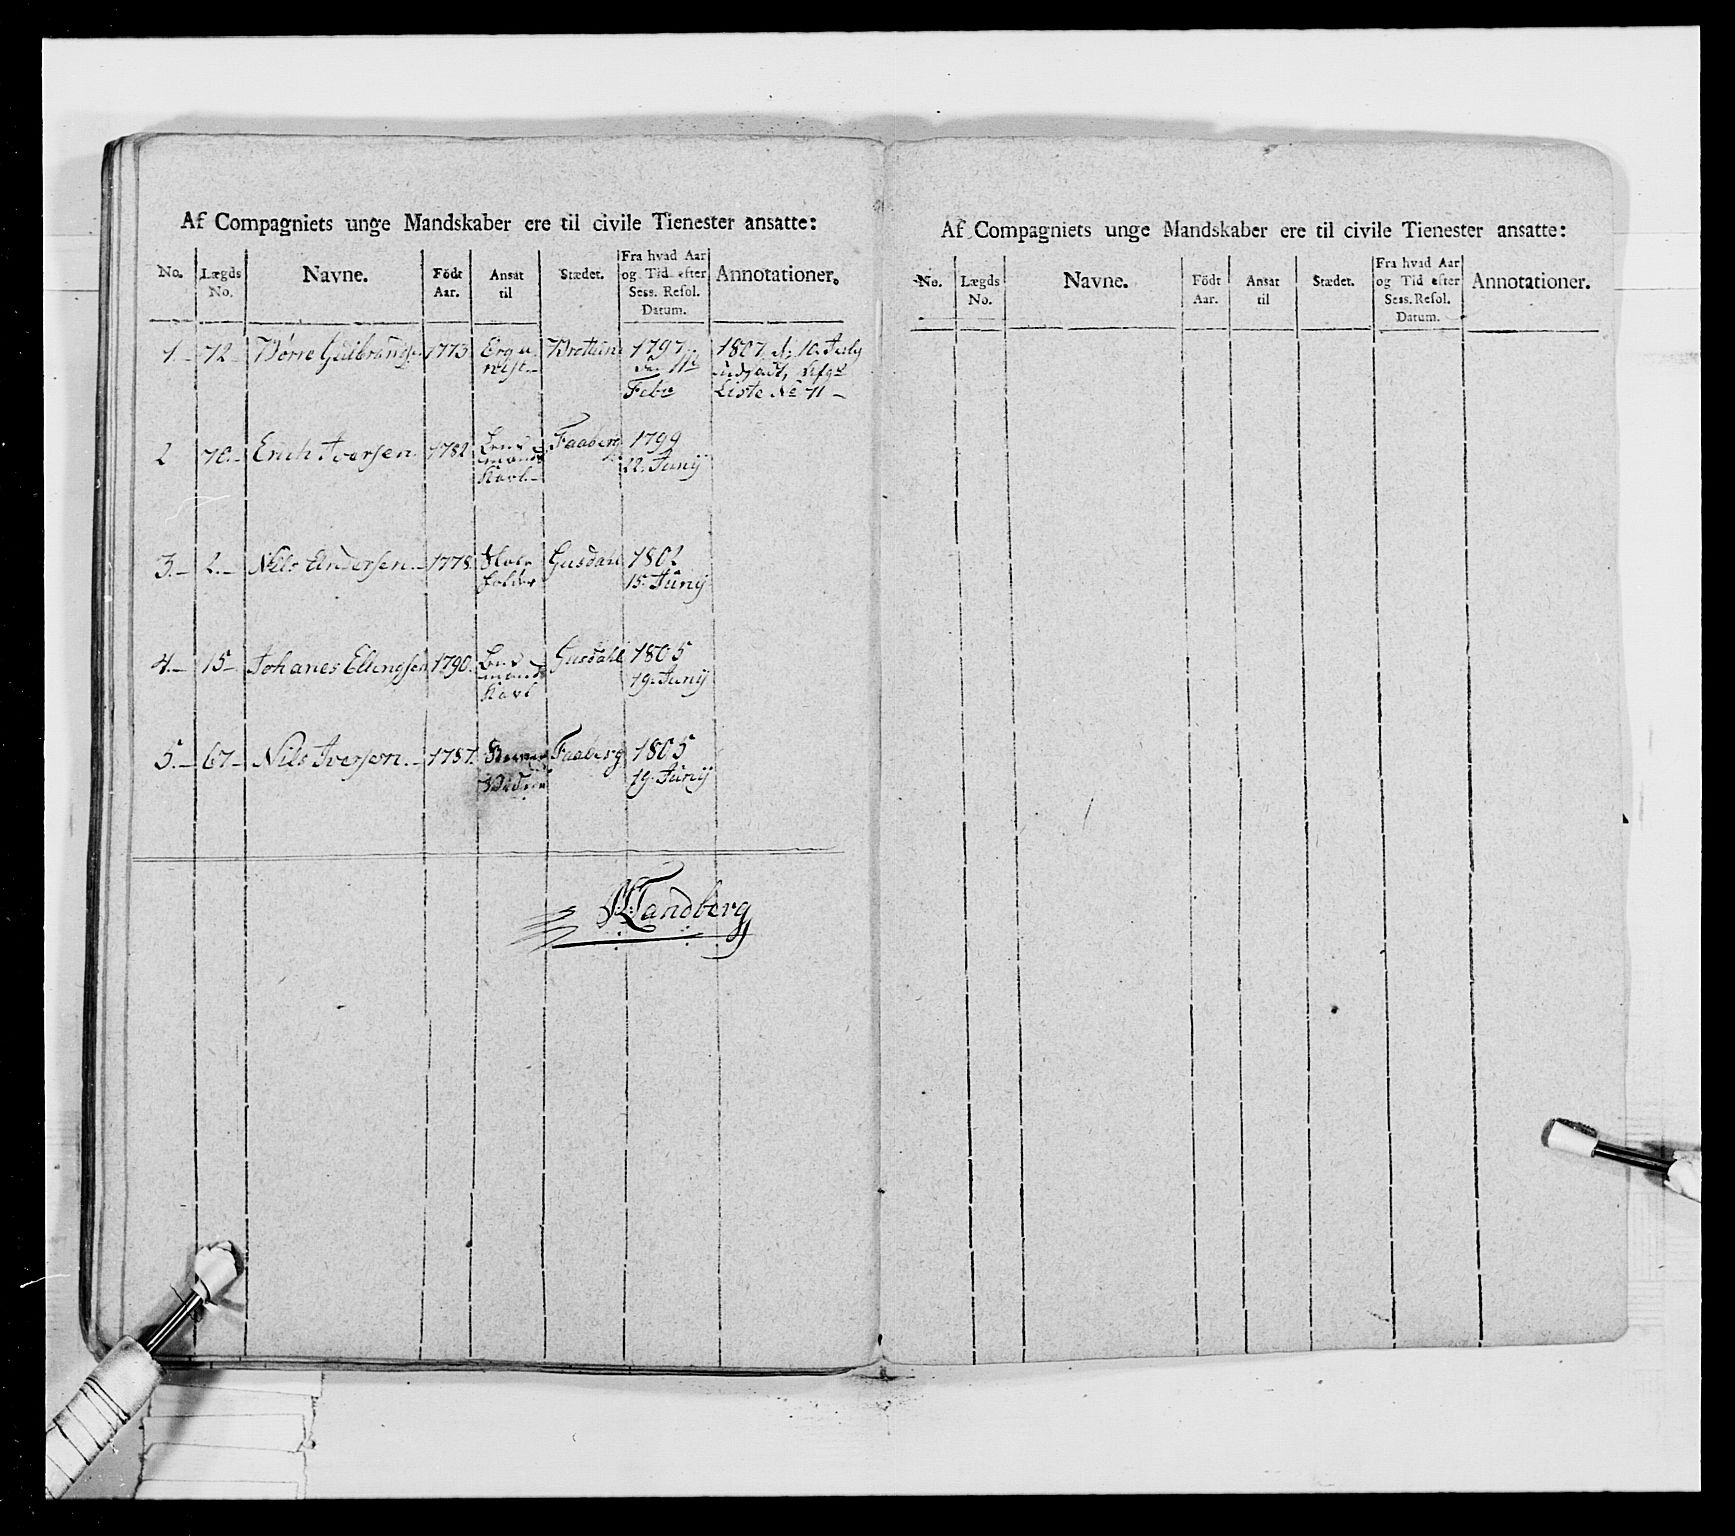 Af Compagniets unge Mandskaber ere til civile Tienester ansatte:
No. Lægds No. Navne. Födt Aar. Ansat til Stædet. Fra hvad Aar og Tid efter Sess. Resol. Datum. Annotationer.
1 - 72 - Börre Gulbrands 1773 Orga- Brottum 1797 1807 d: 10 July
nist - den 11te udsadt, 
Febr Liste No 11 -
2 70. - Erich Iversen 1782 Lens- Faaberg 1799
mands 22. Junij
Karl. -
3. - 2. - Nels Andersen. - 1778 Skole Gusdahl 1802
holder 15. Junij
4. - 15 - Johanes Ellingsen 1790. Lens Gusdahl 1805
mands 19. Junij
Karl
5. - 67 - Nils Iversen. - 1787. Faaberg 1805
19. Junij
Tandberg
Af Compagniets unge Mandskaber ere til civile Tienester ansatte:
No. Lægds No. Navne. Födt Aar. Ansat til Stædet. Fra hvad Aar og Tid efter Sess. Resol. Datum. Annotationer.